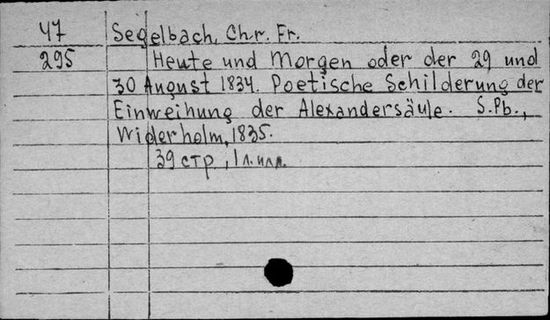 47 Segelbach, Chr. Fr.
295 Heute und Morgen oder der 29 und
30 August 1834. Poetische Schilderung der
Einweihung der Alexandersäule. S.Pb.,
Widerholm, 1835.
39 стр., 1 л. илл.